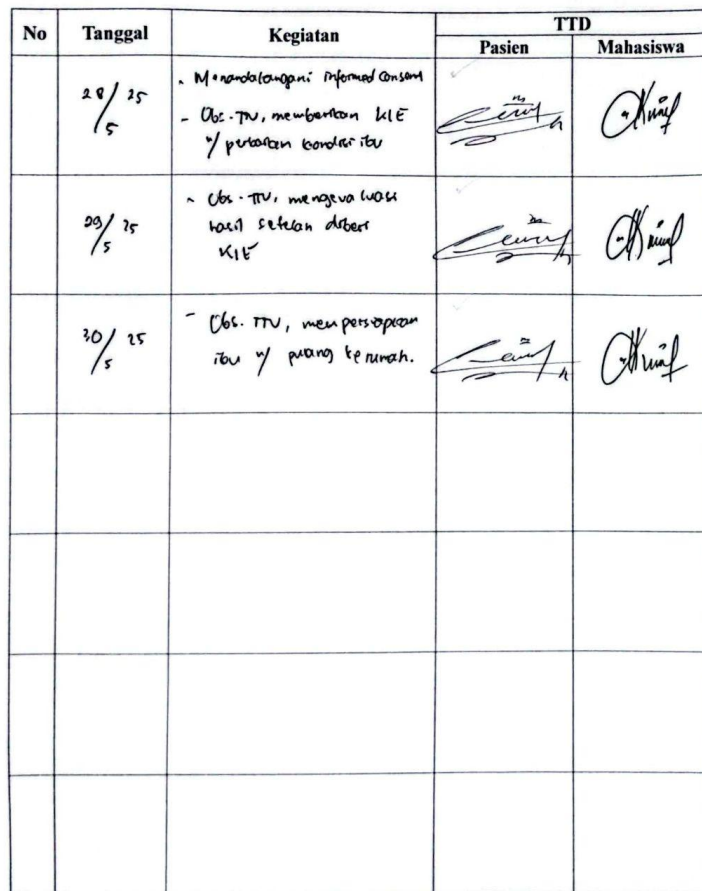 No Tanggal Kegiatan TTD
Pasien Mahasiswa
28/5 25
- Menandatangani informed consent
- Obs. TTV, memberikan KIE
u/ perbaikan kondisi ibu
29/5 25
- Obs. TTV, mengevaluasi
hasil setelah diberi
KIE
30/5 25
- Obs. TTV, mempersiapkan
ibu u/ pulang ke rumah.